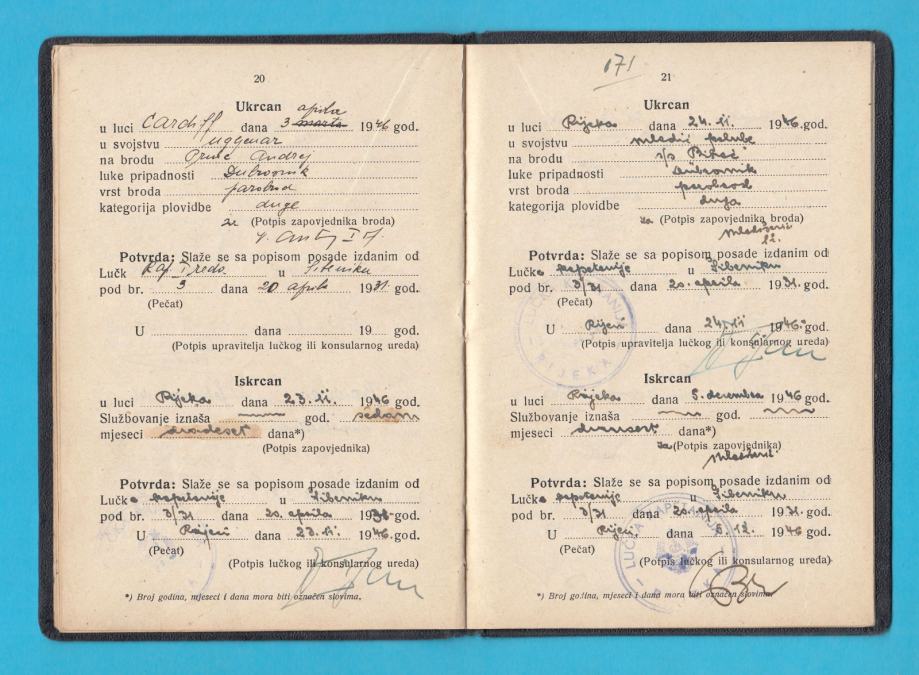 20
Ukrcan
aprila
u luci Cardiff dana 3 marta 1946 god.
u svojstvu
na brodu Andrej
luke pripadnosti Dubrovnik
vrst broda parobrod
kategorija plovidbe duge
(Potpis zapovjednika broda)
Potvrda: Slaže se sa popisom posade izdanim od
Lučk u Šibeniku
pod br. 3 dana 20 aprila 1931 god.
(Pečat)
U dana 19 god.
(Potpis upravitelja lučkog ili konsularnog ureda)
Iskrcan
u luci Rijeka dana 23.11. 1946 god.
Službovanje iznaša god. sedam
mjeseci dvadeset dana*)
(Potpis zapovjednika)
Potvrda: Slaže se sa popisom posade izdanim od
Lučke kapetanije u Šibeniku
pod br. 3/31 dana 20. aprila 1931 god.
U Rijeci dana 23.11. 1946 god.
(Pečat)
(Potpis lučkog ili konsularnog ureda)
*) Broj godina, mjeseci i dana mora biti označen slovima.
171
21
Ukrcan
u luci Rijeka dana 24.11. 1946. god.
u svojstvu mladić palube
na brodu s/s Bihać
luke pripadnosti Dubrovnik
vrst broda parobrod
kategorija plovidbe duga
za (Potpis zapovjednika broda)
Potvrda: Slaže se sa popisom posade izdanim od
Lučke kapetanije u Šibeniku
pod br. 3/31 dana 20. aprila 1931. god.
(Pečat)
U Rijeci dana 24.11 1946. god.
(Potpis upravitelja lučkog ili konsularnog ureda)
LUČKA KAPETANIJA
RIJEKA
Iskrcan
u luci Rijeka dana 5. decembra 1946 god.
Službovanje iznaša god.
mjeseci dvanaest dana*)
za (Potpis zapovjednika)
Potvrda: Slaže se sa popisom posade izdanim od
Lučke kapetanije u Šibeniku
pod br. 3/31 dana 20. aprila 1931. god.
U Rijeci dana 5.12. 1946 god.
(Pečat)
(Potpis lučkog ili konsularnog ureda)
LUČKA KAPETANIJA
*) Broj godina, mjeseci i dana mora biti označen slovima.